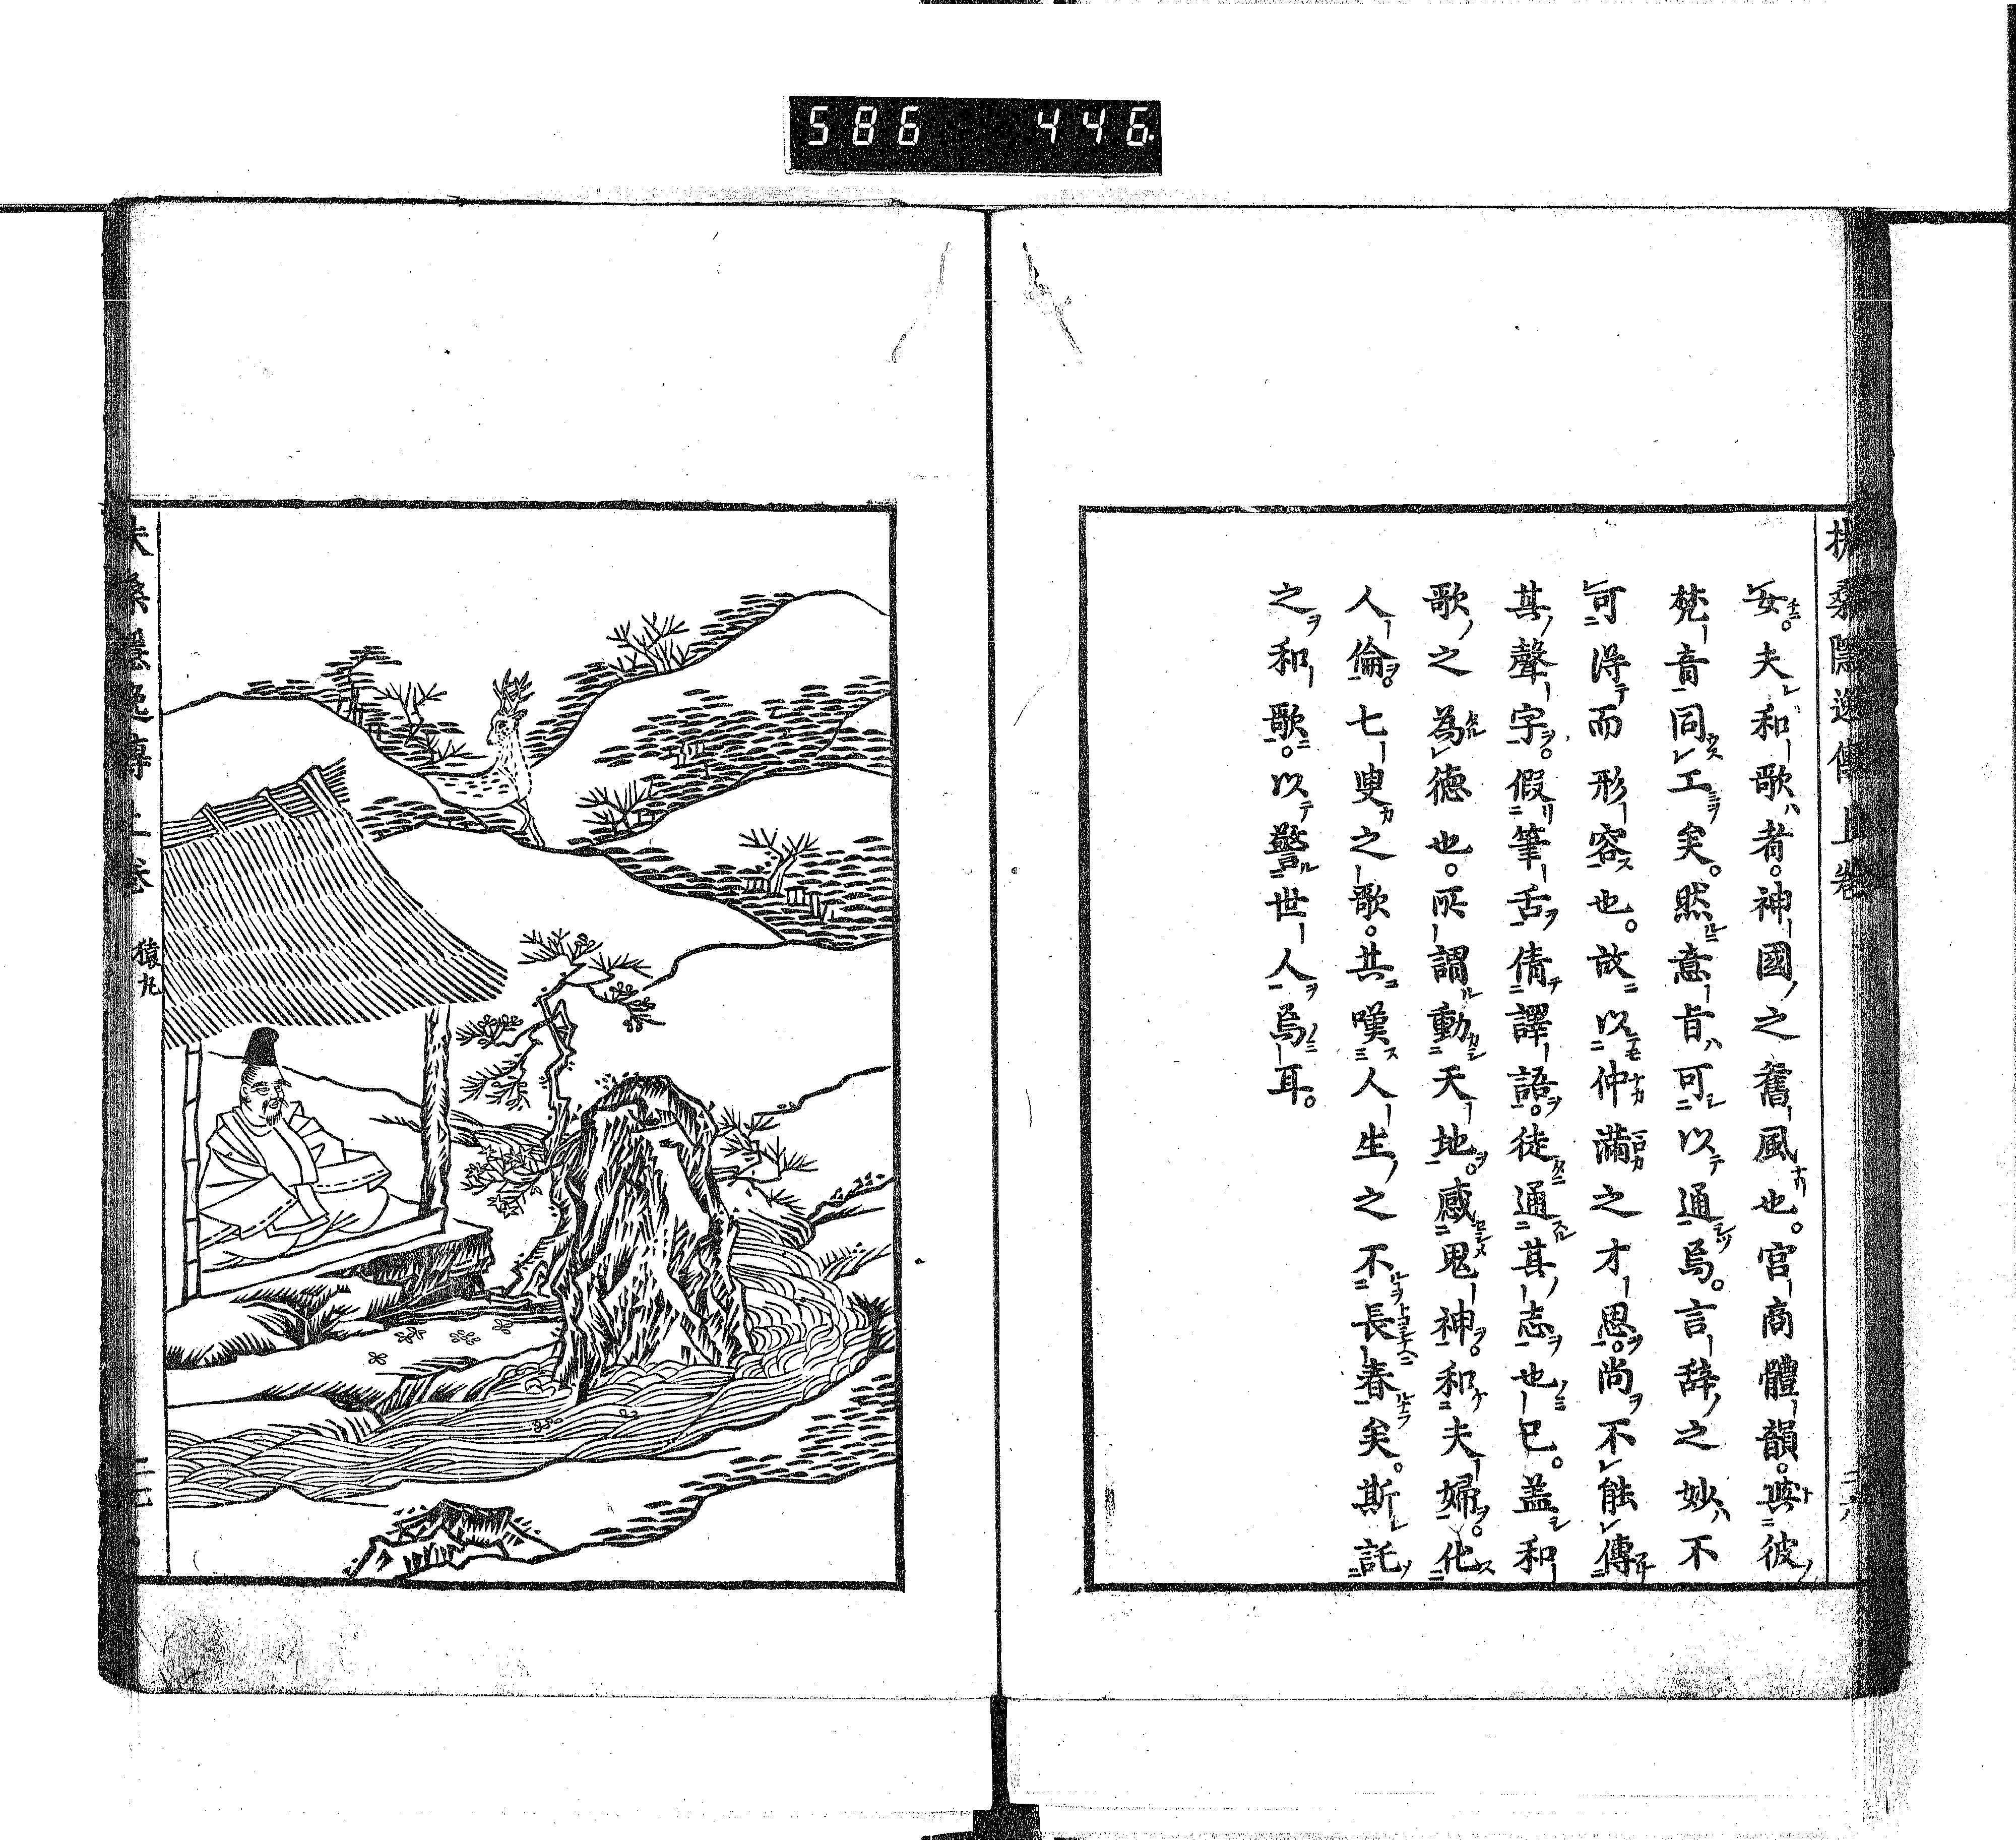 586 446
扶桑隱逸傳上卷
女。夫和歌者。神國之舊風也。宮商體韻。與彼
梵音同工矣。然意旨可以通焉。言辞之妙不
可得而形容也。故以仲滿之才思。尚不能傳
其聲字。假筆舌倩譯語。徒通其志也已。盖和
歌之為德也。所謂動天地。感鬼神。和夫婦。化
人倫。七叟之歌。共嘆人生之不長春矣。斯託
之和歌。以警世人焉耳。
扶桑隱逸傳上卷 猿丸